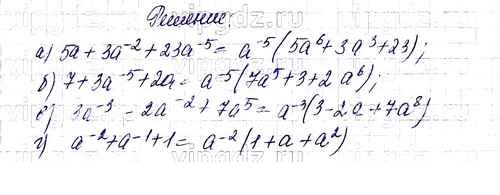 Решение
а) 5a + 3a⁻² + 23a⁻⁵ = a⁻⁵(5a⁶ + 3a³ + 23);
б) 7 + 3a⁻⁵ + 2a = a⁻⁵(7a⁵ + 3 + 2a⁶);
в) 3a⁻³ - 2a⁻² + 7a⁵ = a⁻³(3 - 2a + 7a⁸)
г) a⁻² + a⁻¹ + 1 = a⁻²(1 + a + a²)